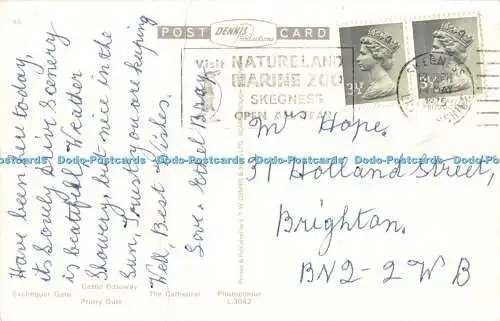 POST DENNIS Productions CARD
Visit NATURELAND
MARINE ZOO
SKEGNESS
OPEN ALL YEAR
SKEGNESS
1975
3½P
Have been here today,
its Lovely Drive Scenery
is beautiful Weather
Showery, but nice in the
Sun, Trust you are keeping
Well, Best Wishes.
Love. Ethel Bray.
Mrs Hope.
31 Holland Street,
Brighton.
BN2-2WB
Castle Gateway
The Cathedral
Exchequer Gate
Priory Gate
L.3042
Dodo-Postcards Dodo-Postcards Dodo-Postcards Dodo-Postcards Dodo-Postcards Dodo-Postcards